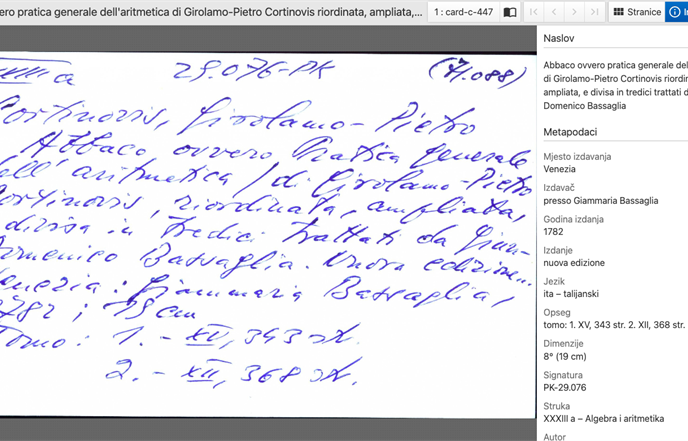 overo pratica generale dell'aritmetica di Girolamo-Pietro Cortinovis riordinata, ampliata,...
1 : card-c-447
Stranice
XXXIII a 29.076-PK (71.088)
Cortinovis, Girolamo-Pietro
Abbaco ovvero Pratica generale
dell' aritmetica / di Girolamo-Pietro
Cortinovis, riordinata, ampliata,
divisa in Tredici Trattati da Gian-
Domenico Bassaglia. Nuova edizione.
Venezia: Giammaria Bassaglia,
1782; 19 cm
Tomo: 1. - XV, 343 str.
2. - XII, 368 str.
Naslov
Abbaco ovvero pratica generale del
di Girolamo-Pietro Cortinovis riordin
ampliata, e divisa in tredici trattati d
Domenico Bassaglia
Metapodaci
Mjesto izdavanja
Venezia
Izdavač
presso Giammaria Bassaglia
Godina izdanja
1782
Izdanje
nuova edizione
Jezik
ita – talijanski
Opseg
tomo: 1. XV, 343 str. 2. XII, 368 str.
Dimenzije
8° (19 cm)
Signatura
PK-29.076
Struka
XXXIII a – Algebra i aritmetika
Autor